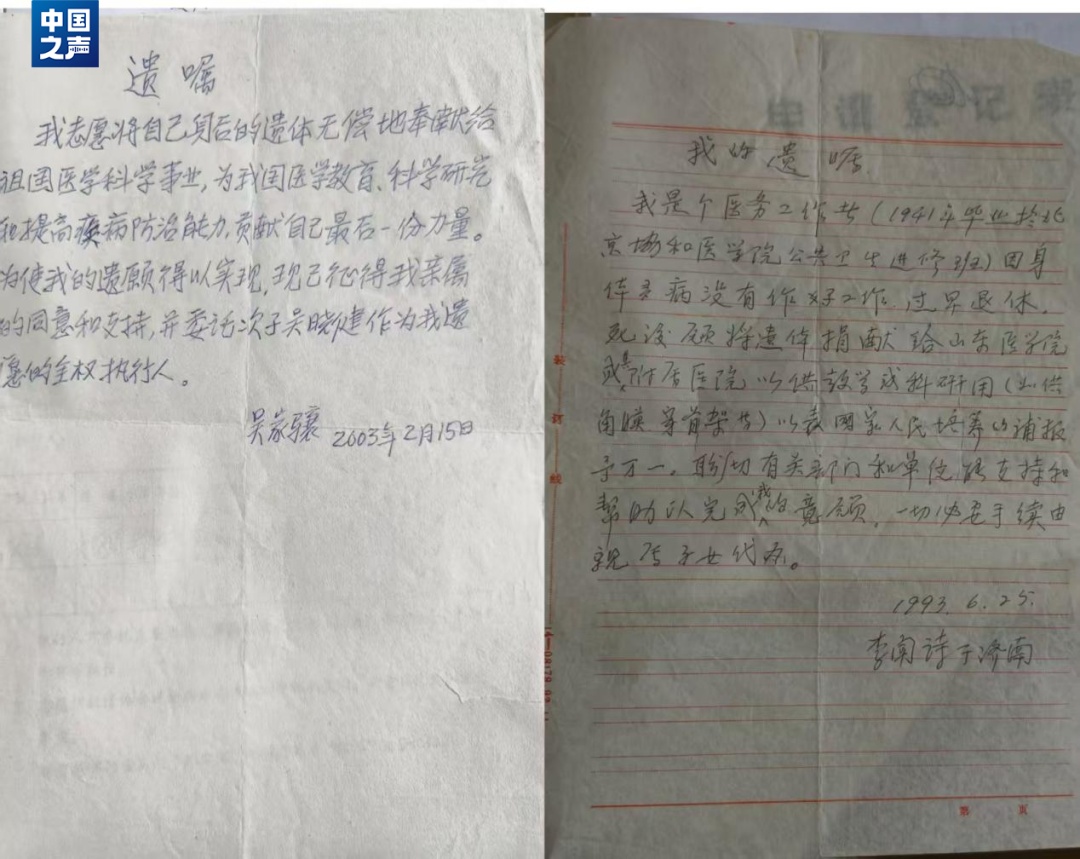 中国
之声
遗嘱
我志愿将自己身后的遗体无偿地奉献给
祖国医学科学事业,为我国医学教育、科学研究
和提高疾病防治能力,贡献自己最后一份力量。
为使我的遗愿得以实现,现已征得我亲属
的同意和支持,并委托次子吴晓健作为我遗
愿的全权执行人。
吴家骧 2003年2月15日
我的遗嘱
我是个医务工作者(1941年毕业於北
京协和医学院公共卫生进修班)因身
体多病没有作好工作,过早退休.
死后愿将遗体捐献给山东医学院
或其附属医院以供教学或科研用(如供
角膜、骨架等)以表国家人民培养的补报
于万一。盼切有关部门和单位能支持和
帮助以完成我的意愿,一切必要手续由
亲属子女代办。
1993.6.25.
李闺诗于济南
装
订
线
第 页